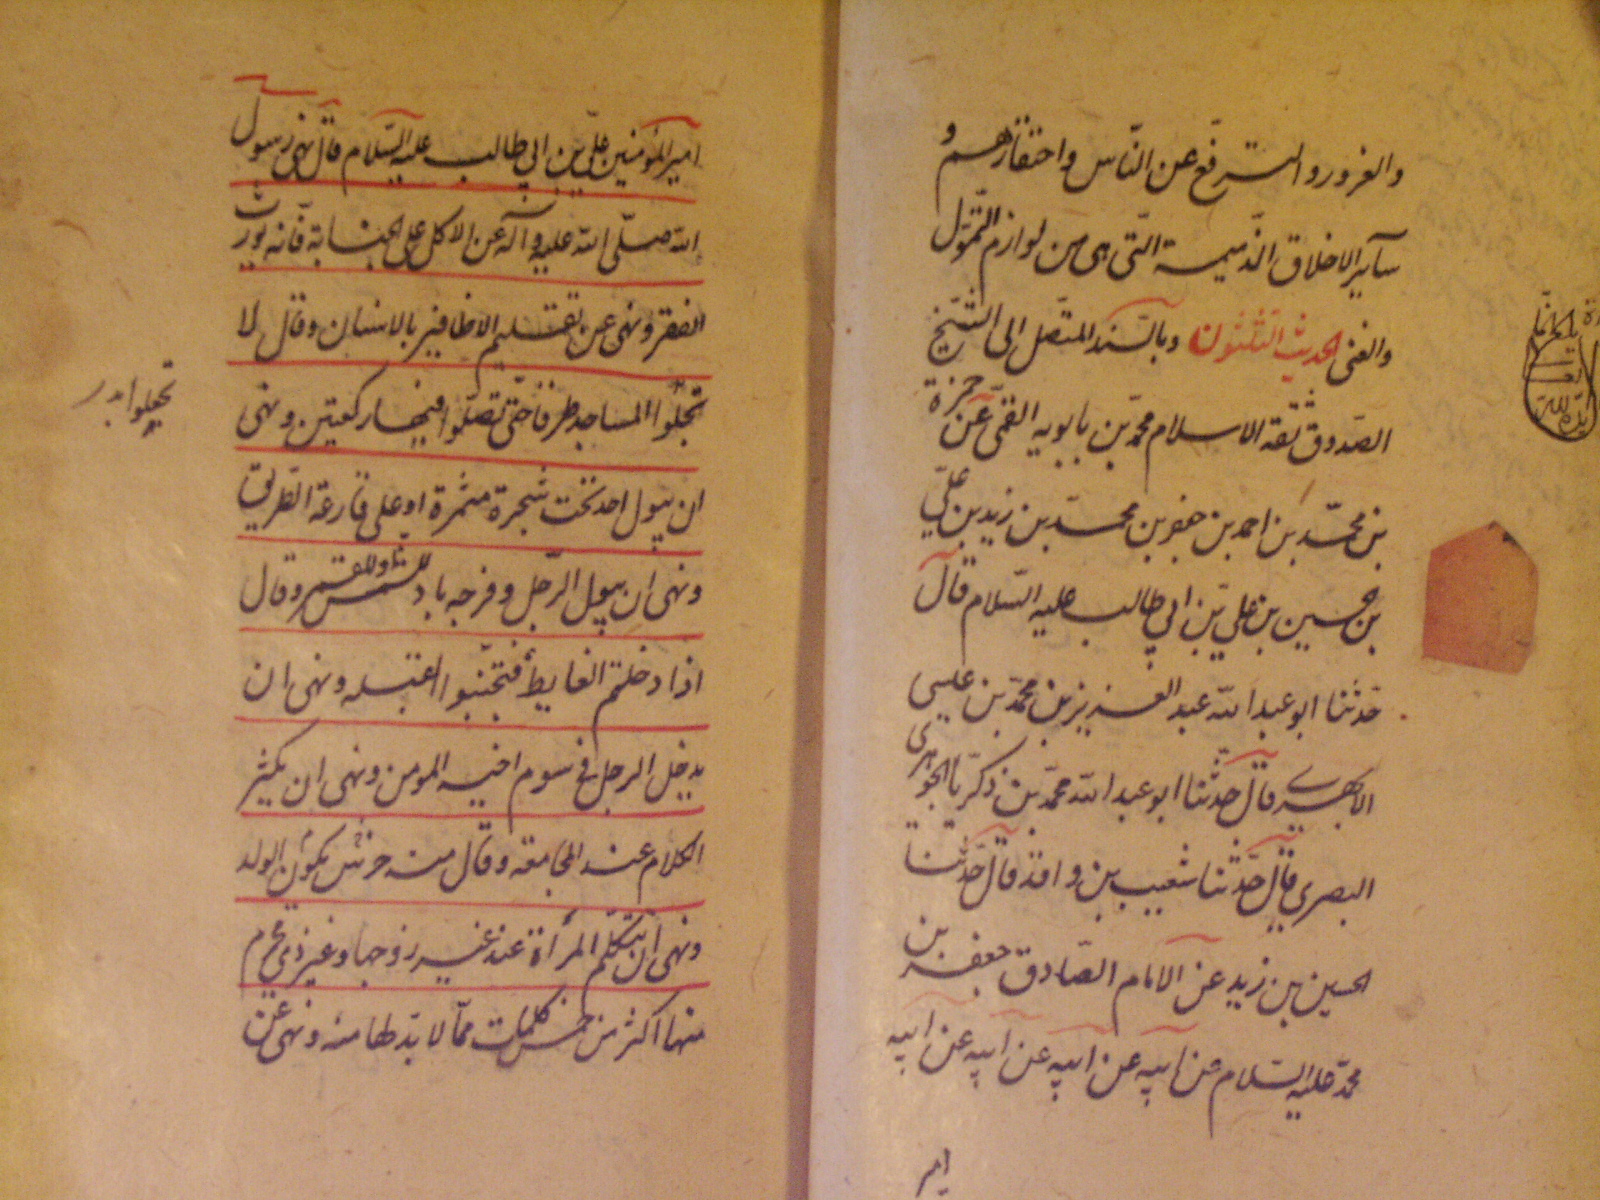 والغرور والترفع عن الناس واحتقارهم و
سآير الاخلاق الذميمة التى هى من لوازم التموّل
والغنى الحديث الثلثون وبالسند المتصل الى الشيخ
الصدوق ثقة الاسلام محمد بن بابويه القمى عن حمزة
بن محمد بن احمد بن جعفر بن محمد بن زيد بن على
بن حسين بن على بن ابي طالب عليه السلام قال
حدثنا ابو عبد الله عبد العزيز بن محمد بن عيسى
الابهرى قال حدثنا ابو عبد الله محمد بن زكريا الجوهرى
البصرى قال حدثنا شعيب بن واقد قال حدثنا
الحسين بن زيد عن الامام الصادق جعفر بن
محمد عليه السلام عن ابيه عن ابيه عن ابيه عن ابيه
امير
امير المؤمنين على بن ابي طالب عليه السلام قال نهى رسول
الله صلى الله عليه وآله عن الاكل على الجنابة فانه يورث
الفقر ونهى عن تقليم الاظافير بالاسنان وقال لا
تجعلوا المساجد طرقا حتى تصلوا فيها ركعتين ونهى
ان يبول احد تحت شجرة مثمرة او على قارعة الطريق
ونهى ان يبول الرجل وفرجه باد للشمس او للقمر وقال
اذا دخلتم الغايط فتجنبوا القبلة ونهى ان
يدخل الرجل فى سوم اخيه المومن ونهى ان يكثر
الكلام عند المجامعة وقال منه خرس يكون الولد
ونهى ان تتكلم المرأة عند غير زوجها وغير ذى محرم
منها اكثر من خمس كلمات مما لا بد لها منه ونهى عن